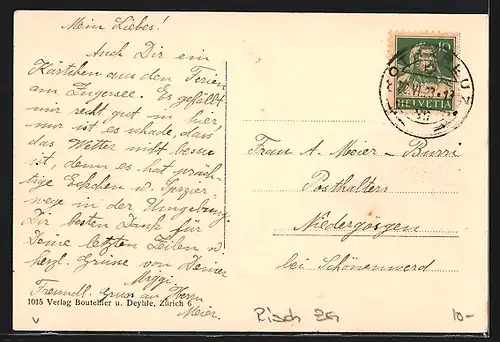 Mein Liebes!
Auch Dir ein
Kärtchen aus den Ferien
am Zugersee. Es gefällt
mir recht gut in hier,
nur ist es schade, dass
das Wetter nicht besser
ist, denn es hat präch-
tige Eckchen u. Spazier-
wege in der Umgebung.
Dir besten Dank für
Deine letzten Zeilen u.
herzl. Grüsse von Deiner
Miggi.
Freundl. Gruss an Herrn
Meier.
1015 Verlag Bouteiller u. Deyhle, Zürich 6
10
HELVETIA
Frau A. Meier-Burri
Posthalters
Niedergösgen
bei Schönenwerd
Risch ZG
10-